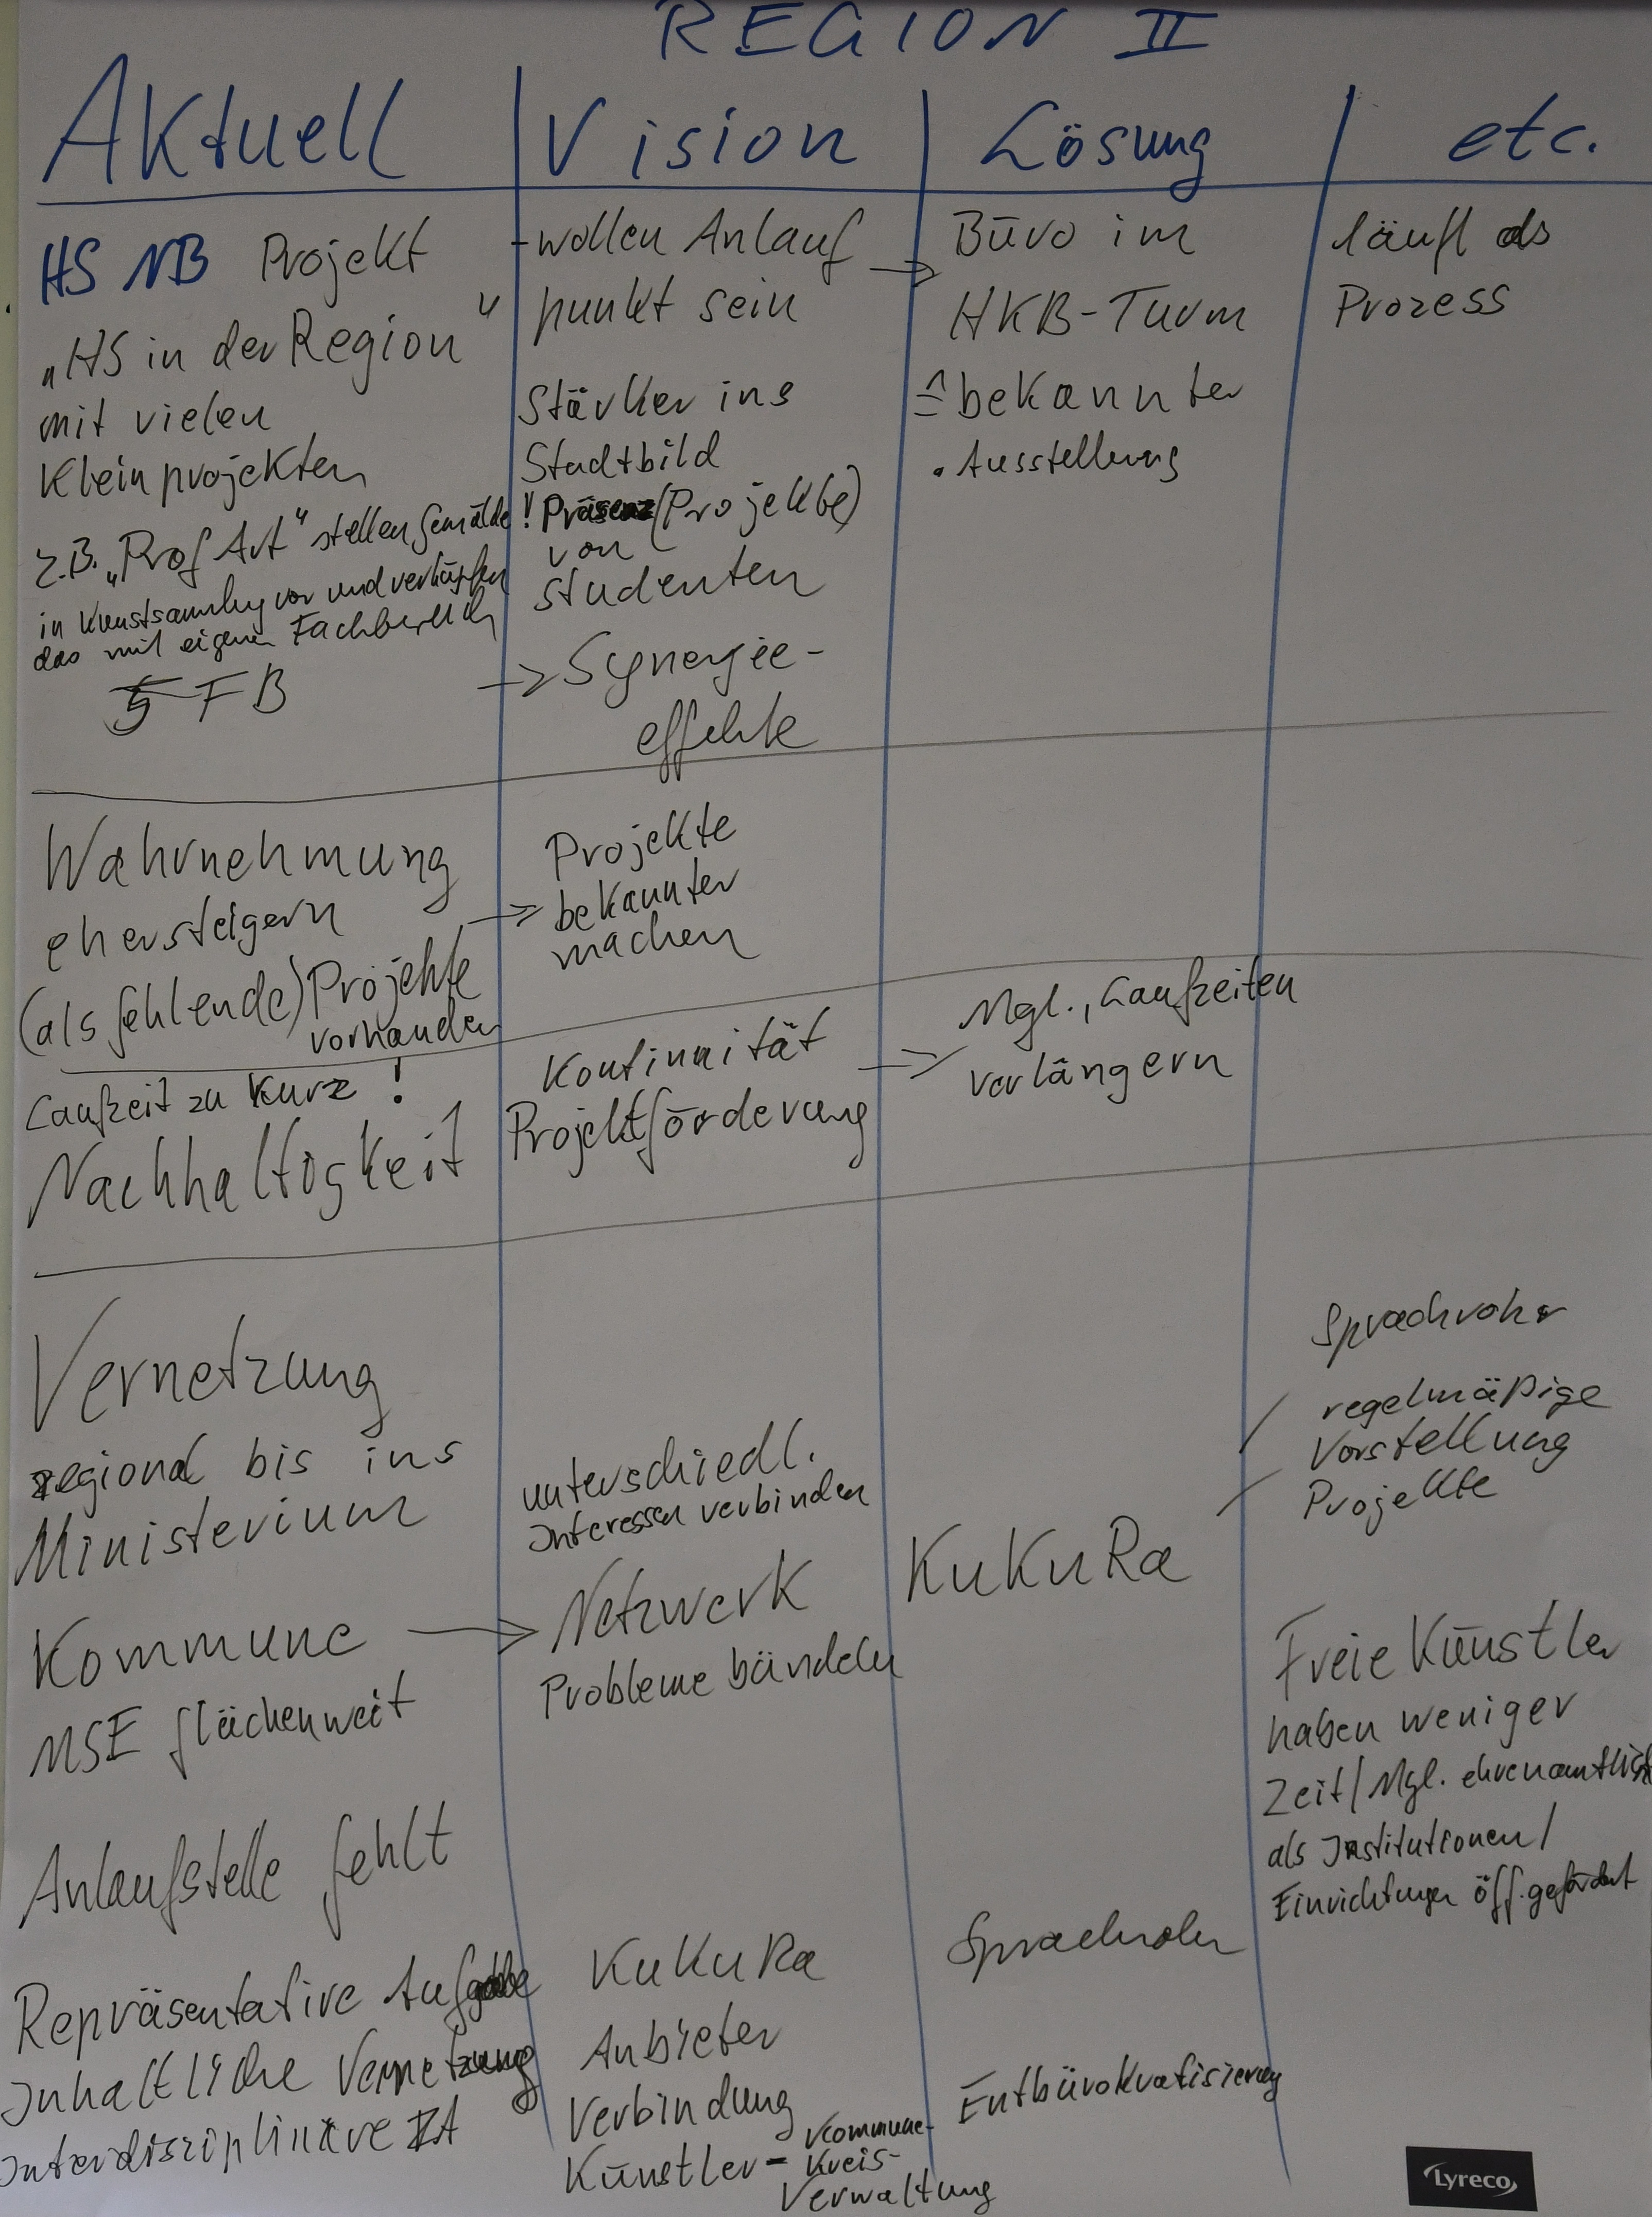 REGION II
Aktuell
Vision
Lösung
etc.
HS NB Projekt
„HS in der Region"
mit vielen
Kleinprojekten
z.B. „Prof Art" stellen Gemälde
in Kunstsammlung vor und verknüpfen
das mit eigenen Fachbereich
FB
- wollen Anlauf
punkt sein
Stärker ins
Stadtbild
! Präsenz (Projekte)
von
Studenten
→ Synergie-
effekte
→ Büro im
HKB-Turm
≙ bekannter
• Ausstellung
läuft als
Prozess
Wahrnehmung
eher steigern
(als fehlende) Projekte
vorhanden
→ Projekte
bekannter
machen
Laufzeit zu kurz !
Nachhaltigkeit
Kontinuität
Projektförderung
→ Mgl., Laufzeiten
verlängern
Vernetzung
regional bis ins
Ministerium
Kommune →
MSE flächenweit
Anlaufstelle fehlt
Repräsentative Aufgabe
Inhaltliche Vernetzung
Interdisziplinäre ZA
unterschiedl.
Interessen verbinden
Netzwerk
Probleme bündeln
KuKuRa
Anbieter
Verbindung
Künstler - Kommune-
Kreis-
Verwaltung
KuKuRa
Sprachrohr
Entbürokratisierung
Sprachrohr
regelmäßige
Vorstellung
Projekte
Freie Künstler
haben weniger
Zeit/Mgl. ehrenamtlich
als Institutionen/
Einrichtungen öff. gefördert
Lyreco